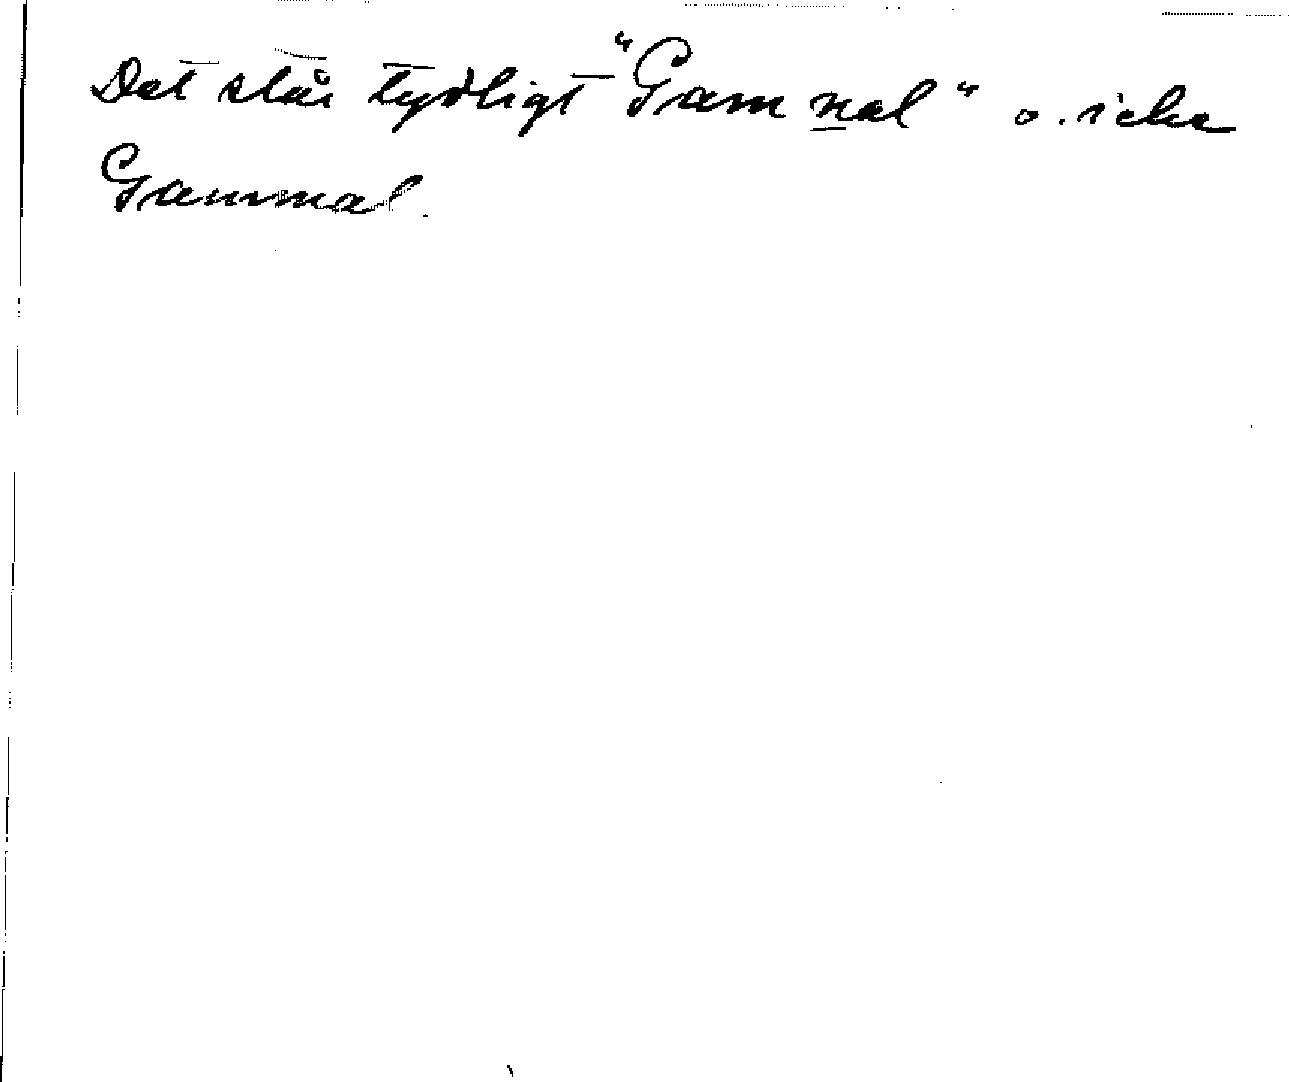 Det står tydligt "Gamnal" o. icke
Gammal.